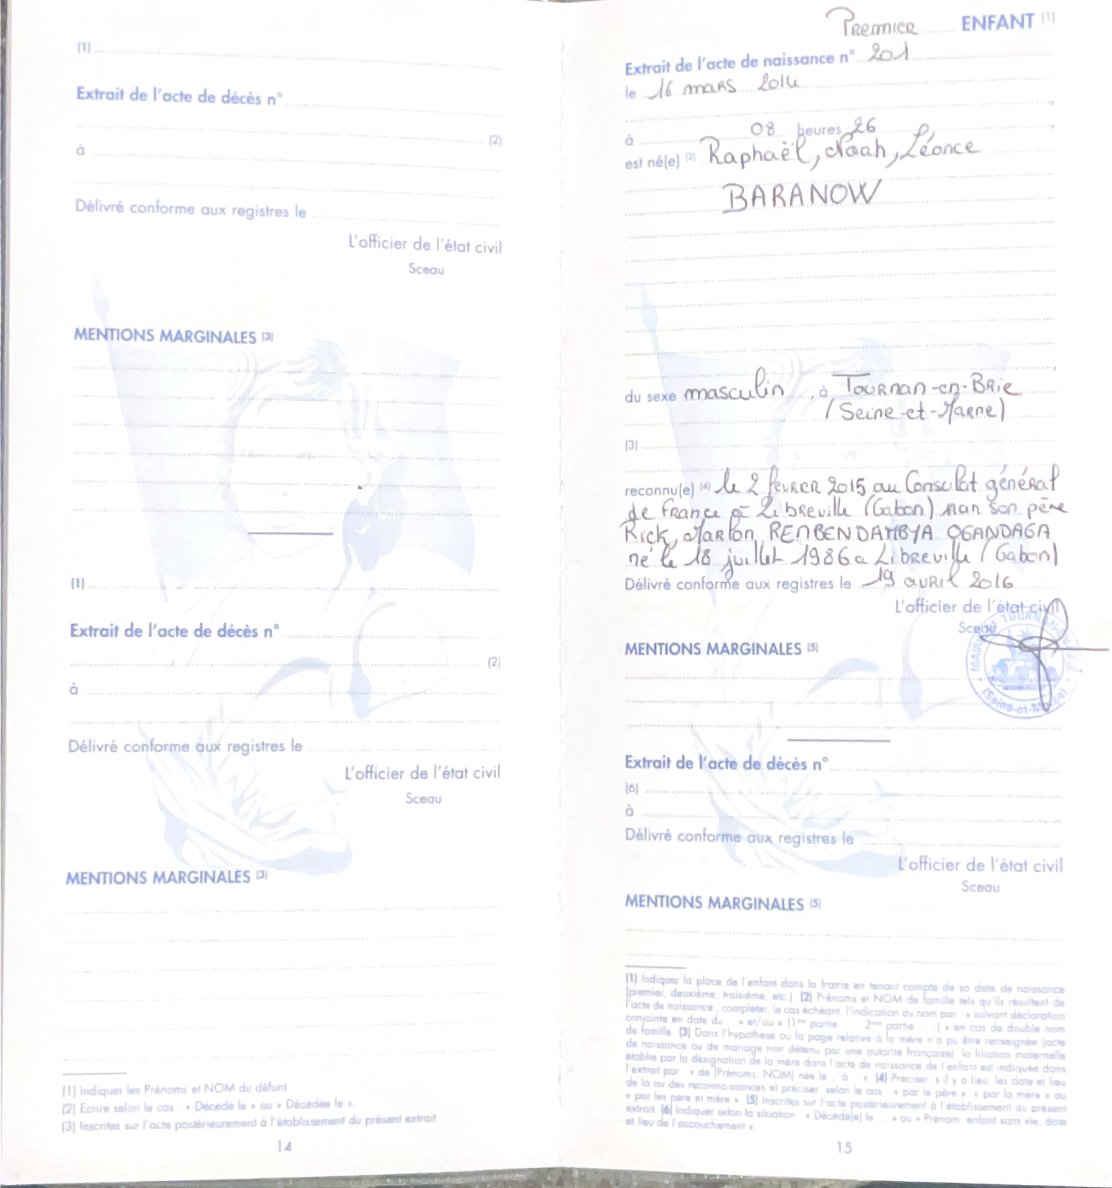 (1)
Extrait de l'acte de décès n°
(2)
à
Délivré conforme aux registres le
L'officier de l'état civil
Sceau
MENTIONS MARGINALES (3)
(1)
Extrait de l'acte de décès n°
(2)
à
Délivré conforme aux registres le
L'officier de l'état civil
Sceau
MENTIONS MARGINALES (3)
(1) Indiquer les Prénoms et NOM du défunt
(2) Ecrire selon le cas « Décédé le » ou « Décédée le ».
(3) Inscrites sur l'acte postérieurement à l'établissement du présent extrait
14
Premier ENFANT (1)
Extrait de l'acte de naissance n° 201
le 16 mars 2014
à 08 heures 26
est né(e) (2) Raphaël, Noah, Léonce
BARANOW
du sexe masculin, à Tournan-en-Brie
(Seine-et-Marne)
(3)
reconnu(e) (4) le 2 février 2015 au Consulat général
de France à Libreville (Gabon) par son père
Rick, Marlon, RENBENDAMBYA OGANDAGA
né le 18 juillet 1986 à Libreville (Gabon)
Délivré conforme aux registres le 19 avril 2016
L'officier de l'état civil
Sceau
MAIRIE DE TOURNAN
(Seine-et-Marne)
MENTIONS MARGINALES (5)
Extrait de l'acte de décès n°
(6)
à
Délivré conforme aux registres le
L'officier de l'état civil
Sceau
MENTIONS MARGINALES (5)
(1) Indiquer la place de l'enfant dans la fratrie en tenant compte de sa date de naissance
(premier, deuxième, troisième, etc.) (2) Prénoms et NOM de famille tels qu'ils résultent de
l'acte de naissance, compléter, le cas échéant, l'indication du nom par « suivant déclaration
conjointe en date du » et/ou « (1ère partie : 2ème partie : ) » en cas de double nom
de famille. (3) Dans l'hypothèse où la page relative à la mère n'a pu être renseignée (acte
de naissance ou de mariage non détenu par une autorité française) la filiation maternelle
établie par la désignation de la mère dans l'acte de naissance de l'enfant est indiquée dans
l'extrait par « de (Prénoms, NOM) née le à » (4) Préciser, s'il y a lieu, les date et lieu
de la ou des reconnaissances et préciser selon le cas « par le père » « par la mère » ou
« par les père et mère » (5) Inscrites sur l'acte postérieurement à l'établissement du présent
extrait. (6) Indiquer selon la situation « Décédé(e) le » ou « Prénom enfant sans vie, date
et lieu de l'accouchement »
15